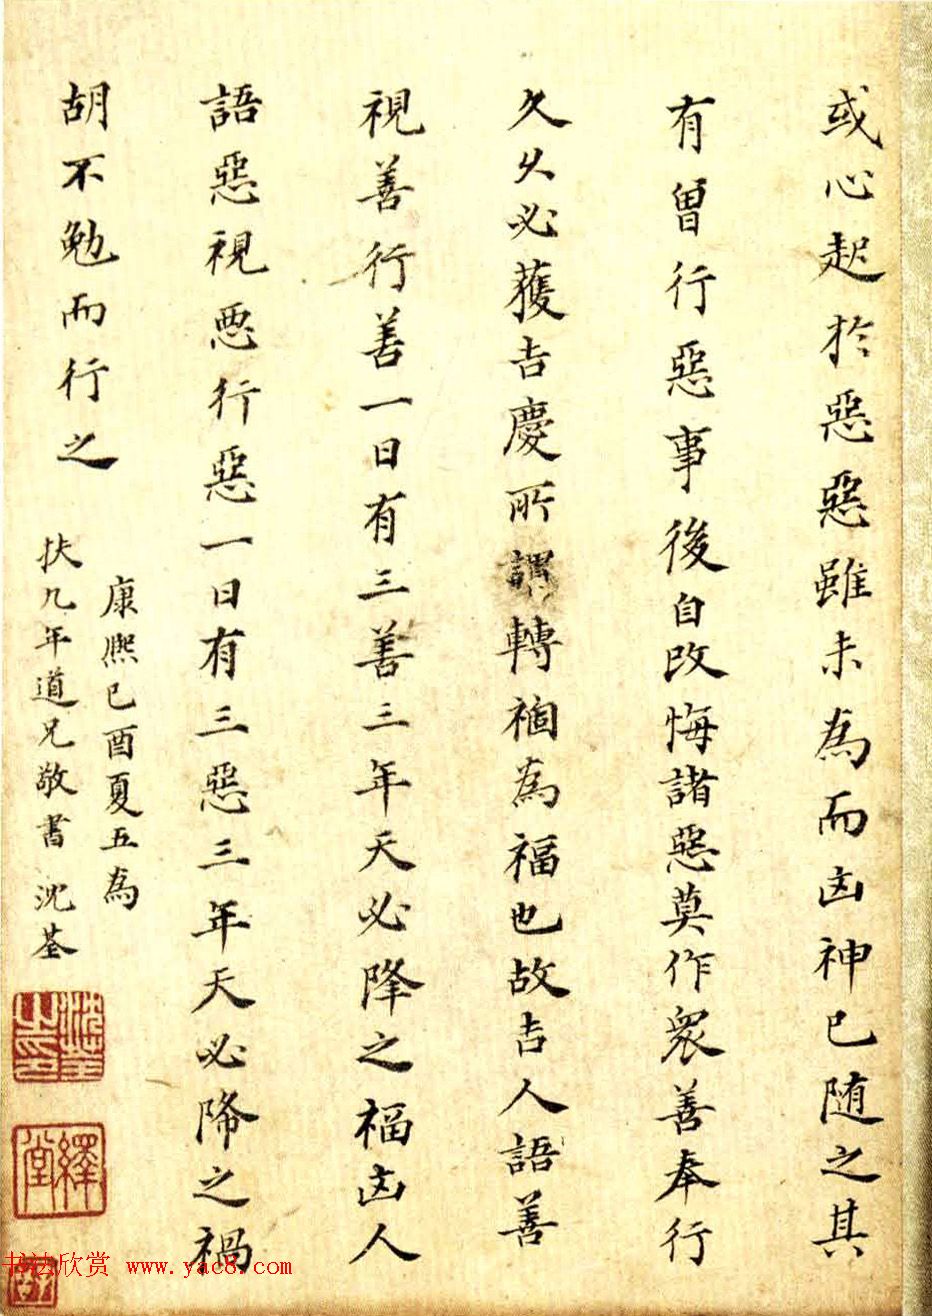 或心起於惡惡雖未為而凶神已随之其
有曽行惡事後自改悔諸惡莫作衆善奉行
久久必獲吉慶所謂轉禍為福也故吉人語善
視善行善一日有三善三年天必降之福凶人
語惡視惡行惡一日有三惡三年天必降之禍
胡不勉而行之
康熙己酉夏五為
扶九年道兄敬書 沈荃
沈荃之印
繹堂
书法欣赏 www.yac8.com